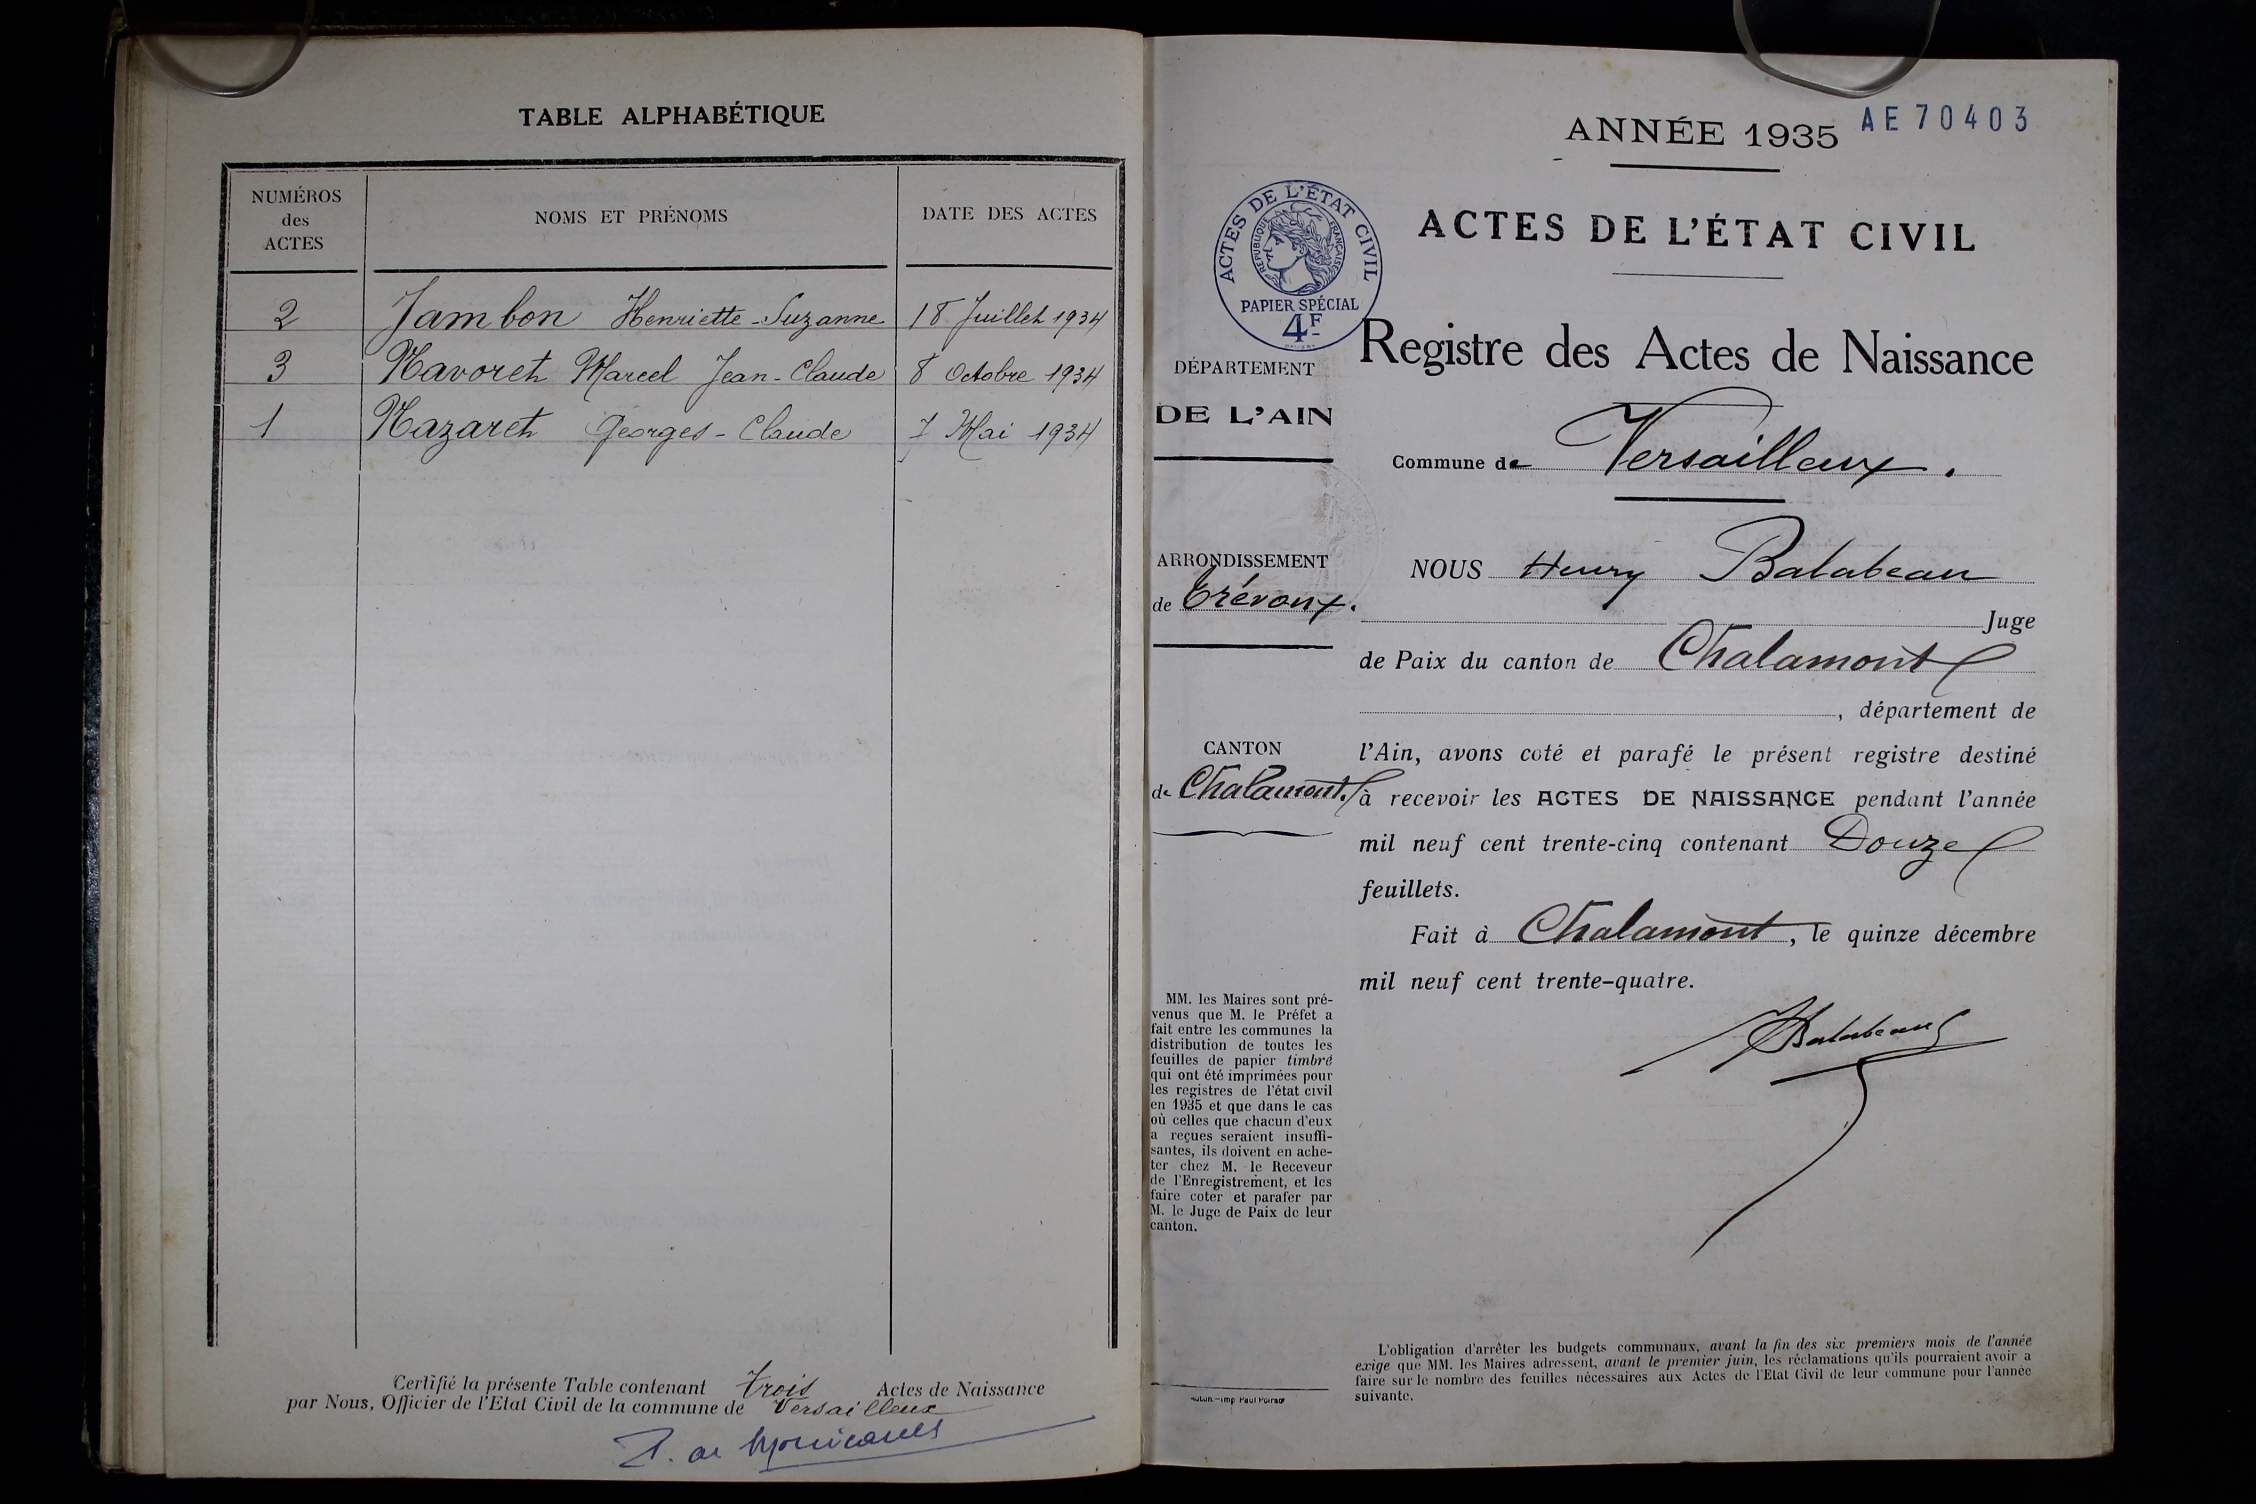 TABLE ALPHABÉTIQUE
NUMÉROS
des
ACTES
NOMS ET PRÉNOMS
DATE DES ACTES
2 Jambon Henriette-Suzanne 18 Juillet 1934
3 Navoret Marcel Jean-Claude 8 Octobre 1934
1 Nazaret Georges-Claude 7 Mai 1934
Certifié la présente Table contenant trois Actes de Naissance
par Nous, Officier de l'Etat Civil de la commune de Versailleux
ANNÉE 1935
AE 70403
ACTES DE L'ÉTAT CIVIL
RÉPUBLIQUE FRANÇAISE
PAPIER SPÉCIAL
4F
ACTES DE L'ÉTAT CIVIL
Registre des Actes de Naissance
DÉPARTEMENT
DE L'AIN
Commune de Versailleux.
ARRONDISSEMENT
de Trévoux.
NOUS Henry Balabeau
Juge
de Paix du canton de Chalamont
, département de
CANTON
de Chalamont.
l'Ain, avons coté et parafé le présent registre destiné
à recevoir les ACTES DE NAISSANCE pendant l'année
mil neuf cent trente-cinq contenant Douze
feuillets.
Fait à Chalamont, le quinze décembre
mil neuf cent trente-quatre.
Balabeau
MM. les Maires sont pré-
venus que M. le Préfet a
fait entre les communes la
distribution de toutes les
feuilles de papier timbré
qui ont été imprimées pour
les registres de l'état civil
en 1935 et que dans le cas
où celles que chacun d'eux
a reçues seraient insuffi-
santes, ils doivent en ache-
ter chez M. le Receveur
de l'Enregistrement, et les
faire coter et parafer par
M. le Juge de Paix de leur
canton.
L'obligation d'arrêter les budgets communaux, avant la fin des six premiers mois de l'année
exige que MM. les Maires adressent, avant le premier juin, les réclamations qu'ils pourraient avoir a
faire sur le nombre des feuilles nécessaires aux Actes de l'Etat Civil de leur commune pour l'année
suivante.